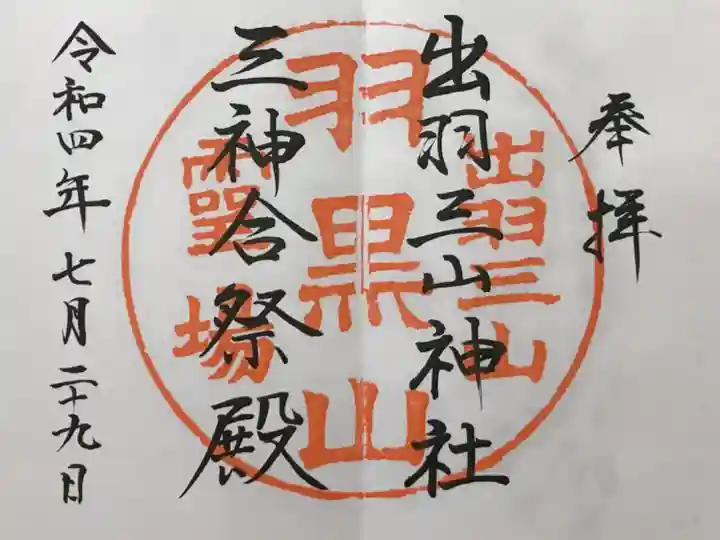 奉拝
出羽三山神社
三神合祭殿
令和四年七月二十九日
出羽三山
羽黒山
霊場